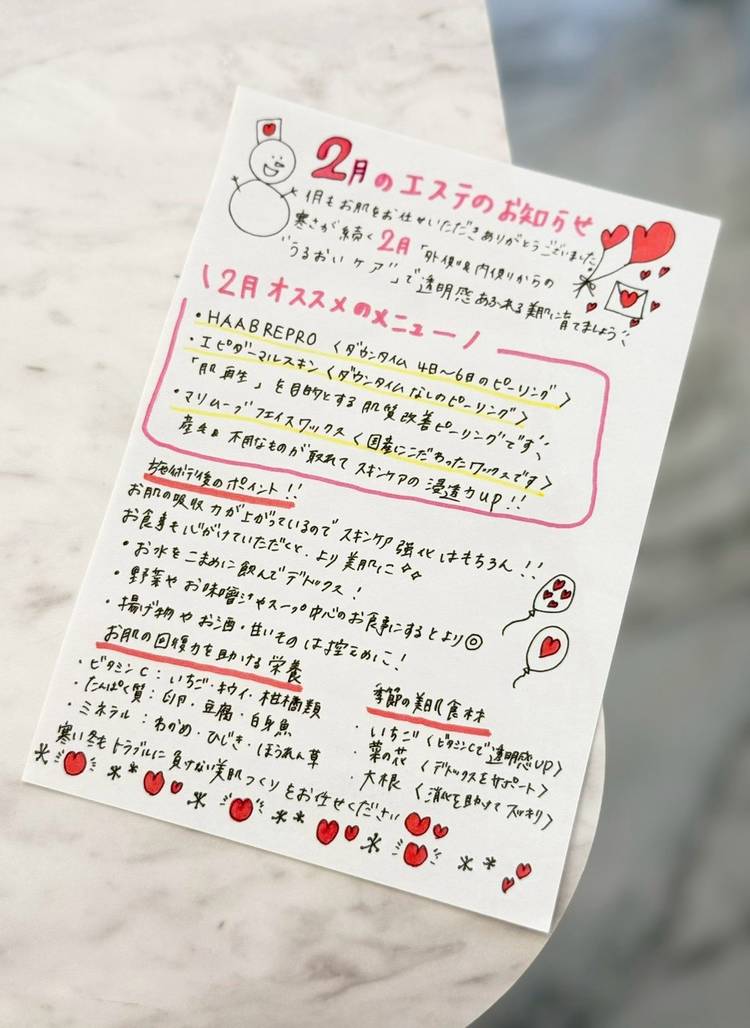 2月のエステのお知らせ
1月もお肌をお任せいただきありがとうございました!
寒さが続く2月「外側&内側からの
"うるおいケア"」で透明感あふれる美肌に育てましょう
\2月オススメのメニュー/
・HAABREPRO〈ダウンタイム 4日〜6日のピーリング〉
・エピダーマルスキン〈ダウンタイムなしのピーリング〉
「肌再生」を目的とする肌質改善ピーリングです
・マリムーブフェイスワックス〈国産にこだわったワックスです〉
産毛&不用なものが取れてスキンケアの浸透力up!!
施術後のポイント!!
お肌の吸収力が上がっているのでスキンケア強化はもちろん!!
お食事も心がけていただくと、より美肌に
・お水をこまめに飲んでデトックス!
・野菜やお味噌汁やスープ中心のお食事にするとより◎
・揚げ物やお酒・甘いものは控えめに!
お肌の回復力を助ける栄養
・ビタミンC:いちご・キウイ・柑橘類
・たんぱく質:卵・豆腐・白身魚
・ミネラル:わかめ・ひじき・ほうれん草
季節の美肌食材
・いちご〈ビタミンCで透明感UP〉
・菜の花〈デトックスをサポート〉
・大根〈消化を助けてスッキリ〉
寒い冬もトラブルに負けない美肌つくりをお任せください